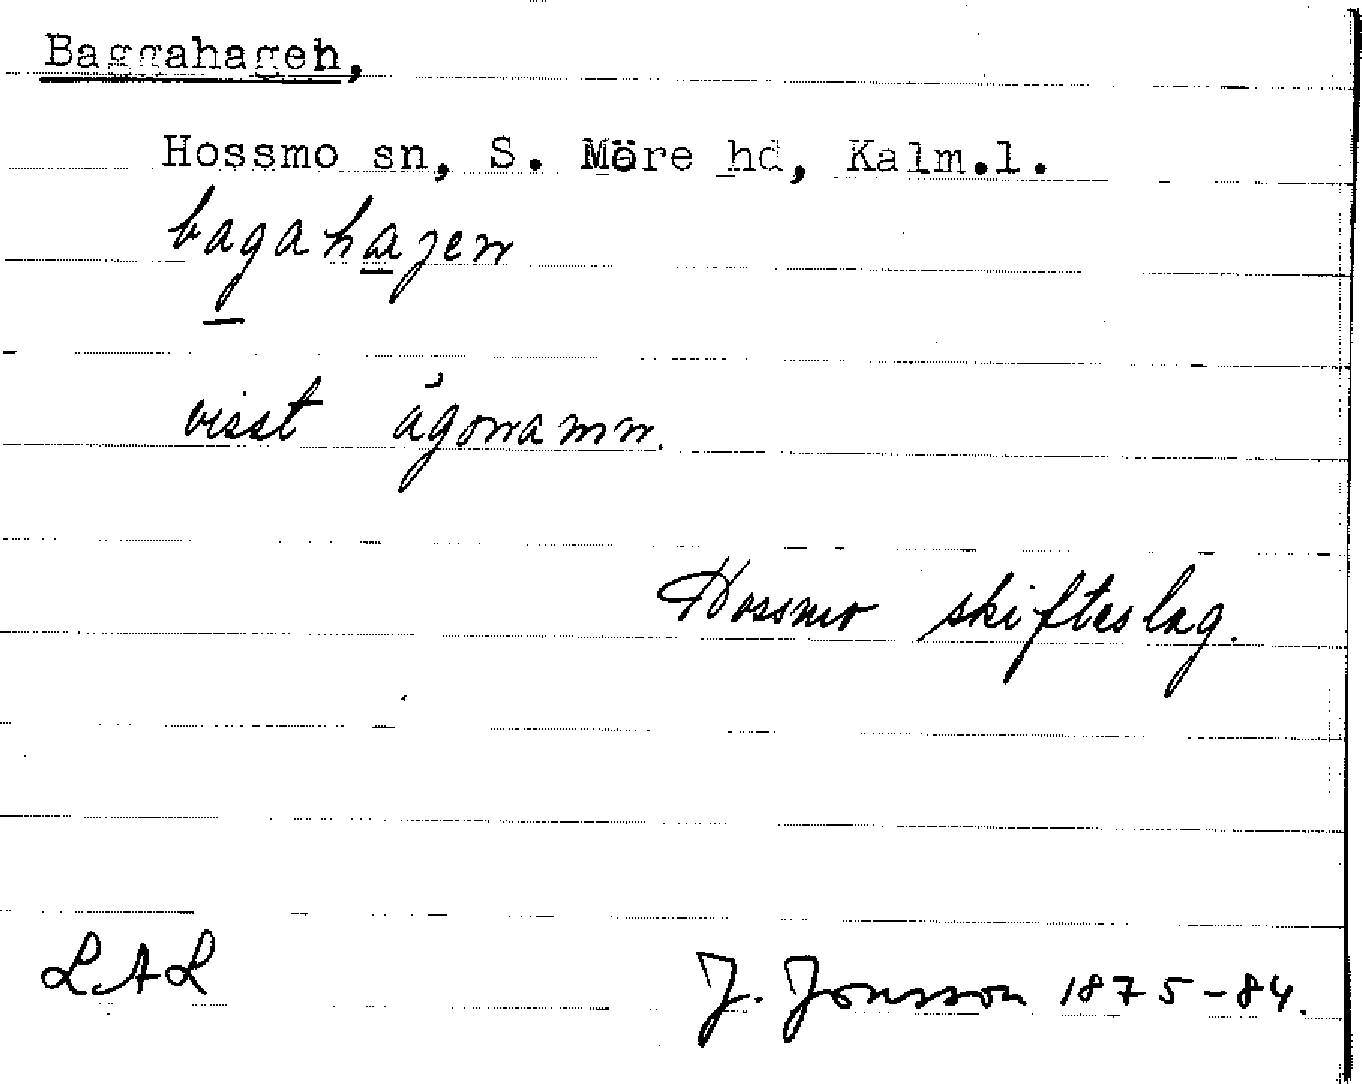 Baggahagen,
Hossmo sn, S. Möre hd, Kalm.l.
bagahagen
visst ägonamn.
Hossmo skifteslag.
LAL
J. Jonsson 1875-84.